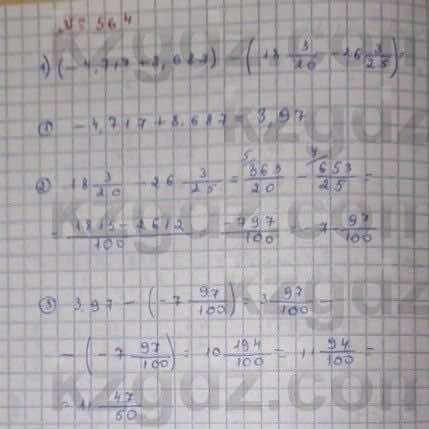 № 564
1) (-4,717+8,687) - (18 3/20 - 26 3/25) =
① -4,717+8,687 = 3,97
② 18 3/20 - 26 3/25 = 363/20 - 653/25 =
= 1815-2612/100 = -797/100 = -7 97/100
③ 3,97 - (-7 97/100) = 3 97/100 -
- (-7 97/100) = 10 194/100 = 11 94/100 =
= 11 47/50